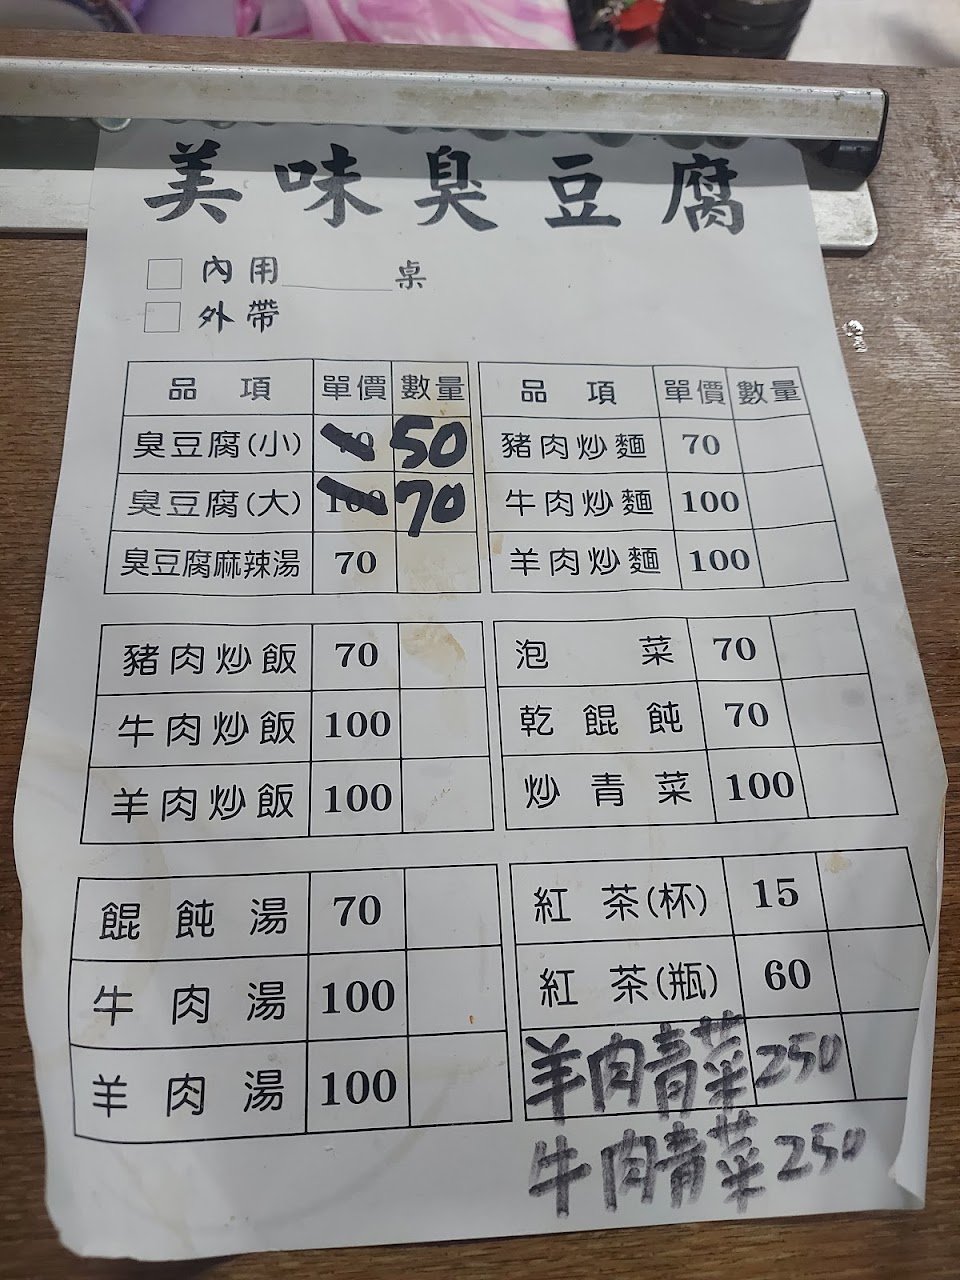 美味臭豆腐
內用______桌
外帶
品項 單價 數量
臭豆腐(小) 70 50
臭豆腐(大) 100 70
臭豆腐麻辣湯 70
品項 單價 數量
豬肉炒麵 70
牛肉炒麵 100
羊肉炒麵 100
豬肉炒飯 70
牛肉炒飯 100
羊肉炒飯 100
泡菜 70
乾餛飩 70
炒青菜 100
餛飩湯 70
牛肉湯 100
羊肉湯 100
紅茶(杯) 15
紅茶(瓶) 60
羊肉青菜 250
牛肉青菜 250